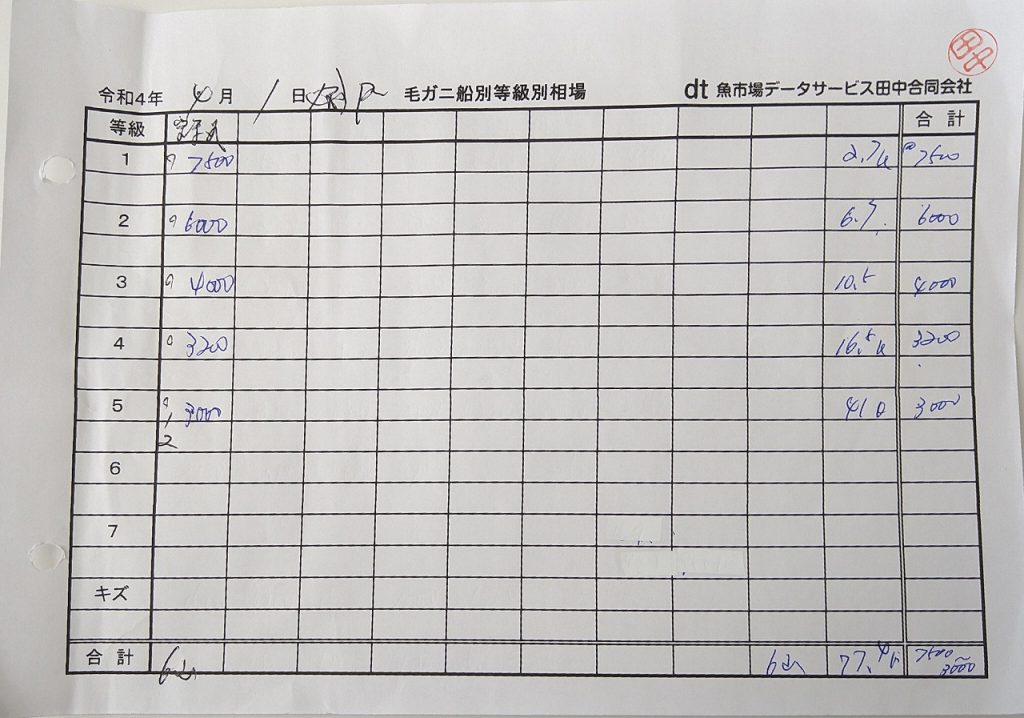 令和4年 4月 1日 毛ガニ船別等級別相場 dt 魚市場データサービス田中合同会社
等級 合計
1 @ 7500 2.7k @ 7500
2 @ 6000 6.7 6000
3 @ 4000 10.5 4000
4 @ 3200 16.5k 3200
5 @ 3000 41.0 3000
2
6
7
キズ
合計 6山 6山 77.4k 7500
3000